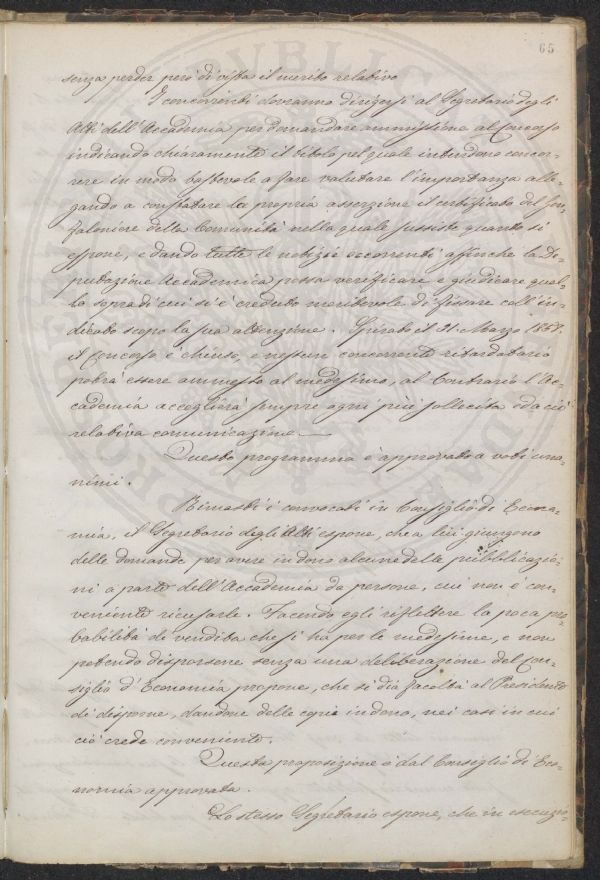 65
senza perder però di vista il merito relativo
I concorrenti dovranno dirigersi al Segretario degli
Atti dell'Accademia per domandare ammissione al Concorso
indicando chiaramente il titolo pel quale intendono concor-
rere in modo bastevole a fare valutare l'importanza alle-
gando a constatare la propria asserzione il certificato del Gon-
faloniere della Comunità nella quale sussiste quanto si
espone, e dando tutte le notizie occorrenti affinchè la De-
putazione Accademica possa verificare e giudicare quel-
la sopra di cui si è creduto meritevole di fissare coll'in-
dicato scopo la sua attenzione. Spirato il 21. Marzo
il Concorso è chiuso, e nessun concorrente ritardatario
potrà essere ammesso al medesimo, al contrario l'Ac-
cademia accoglierà sempre ogni più sollecita e da ciò
relativa comunicazione
Questo programma è approvato a voti una-
nimi.
Rimasti i convocati in Consiglio di Econo-
mia, il Segretario degli Atti espone, che a lui giungono
delle domande per avere in dono alcune delle pubblicazio-
ni a parte dell'Accademia da persone, cui non è con-
veniente ricusarle. Facendo egli riflettere la poca pro-
babilità di vendita che si ha per le medesime, e non
potendo disporsene senza una deliberazione del Con-
siglio d'Economia propone, che si dia facoltà al Presidente
di disporne, dandone delle copie in dono, nei casi in cui
ciò crede conveniente.
Questa proposizione è dal Consiglio di Eco-
nomia approvata.
Lo stesso Segretario espone, che in esecuzio-